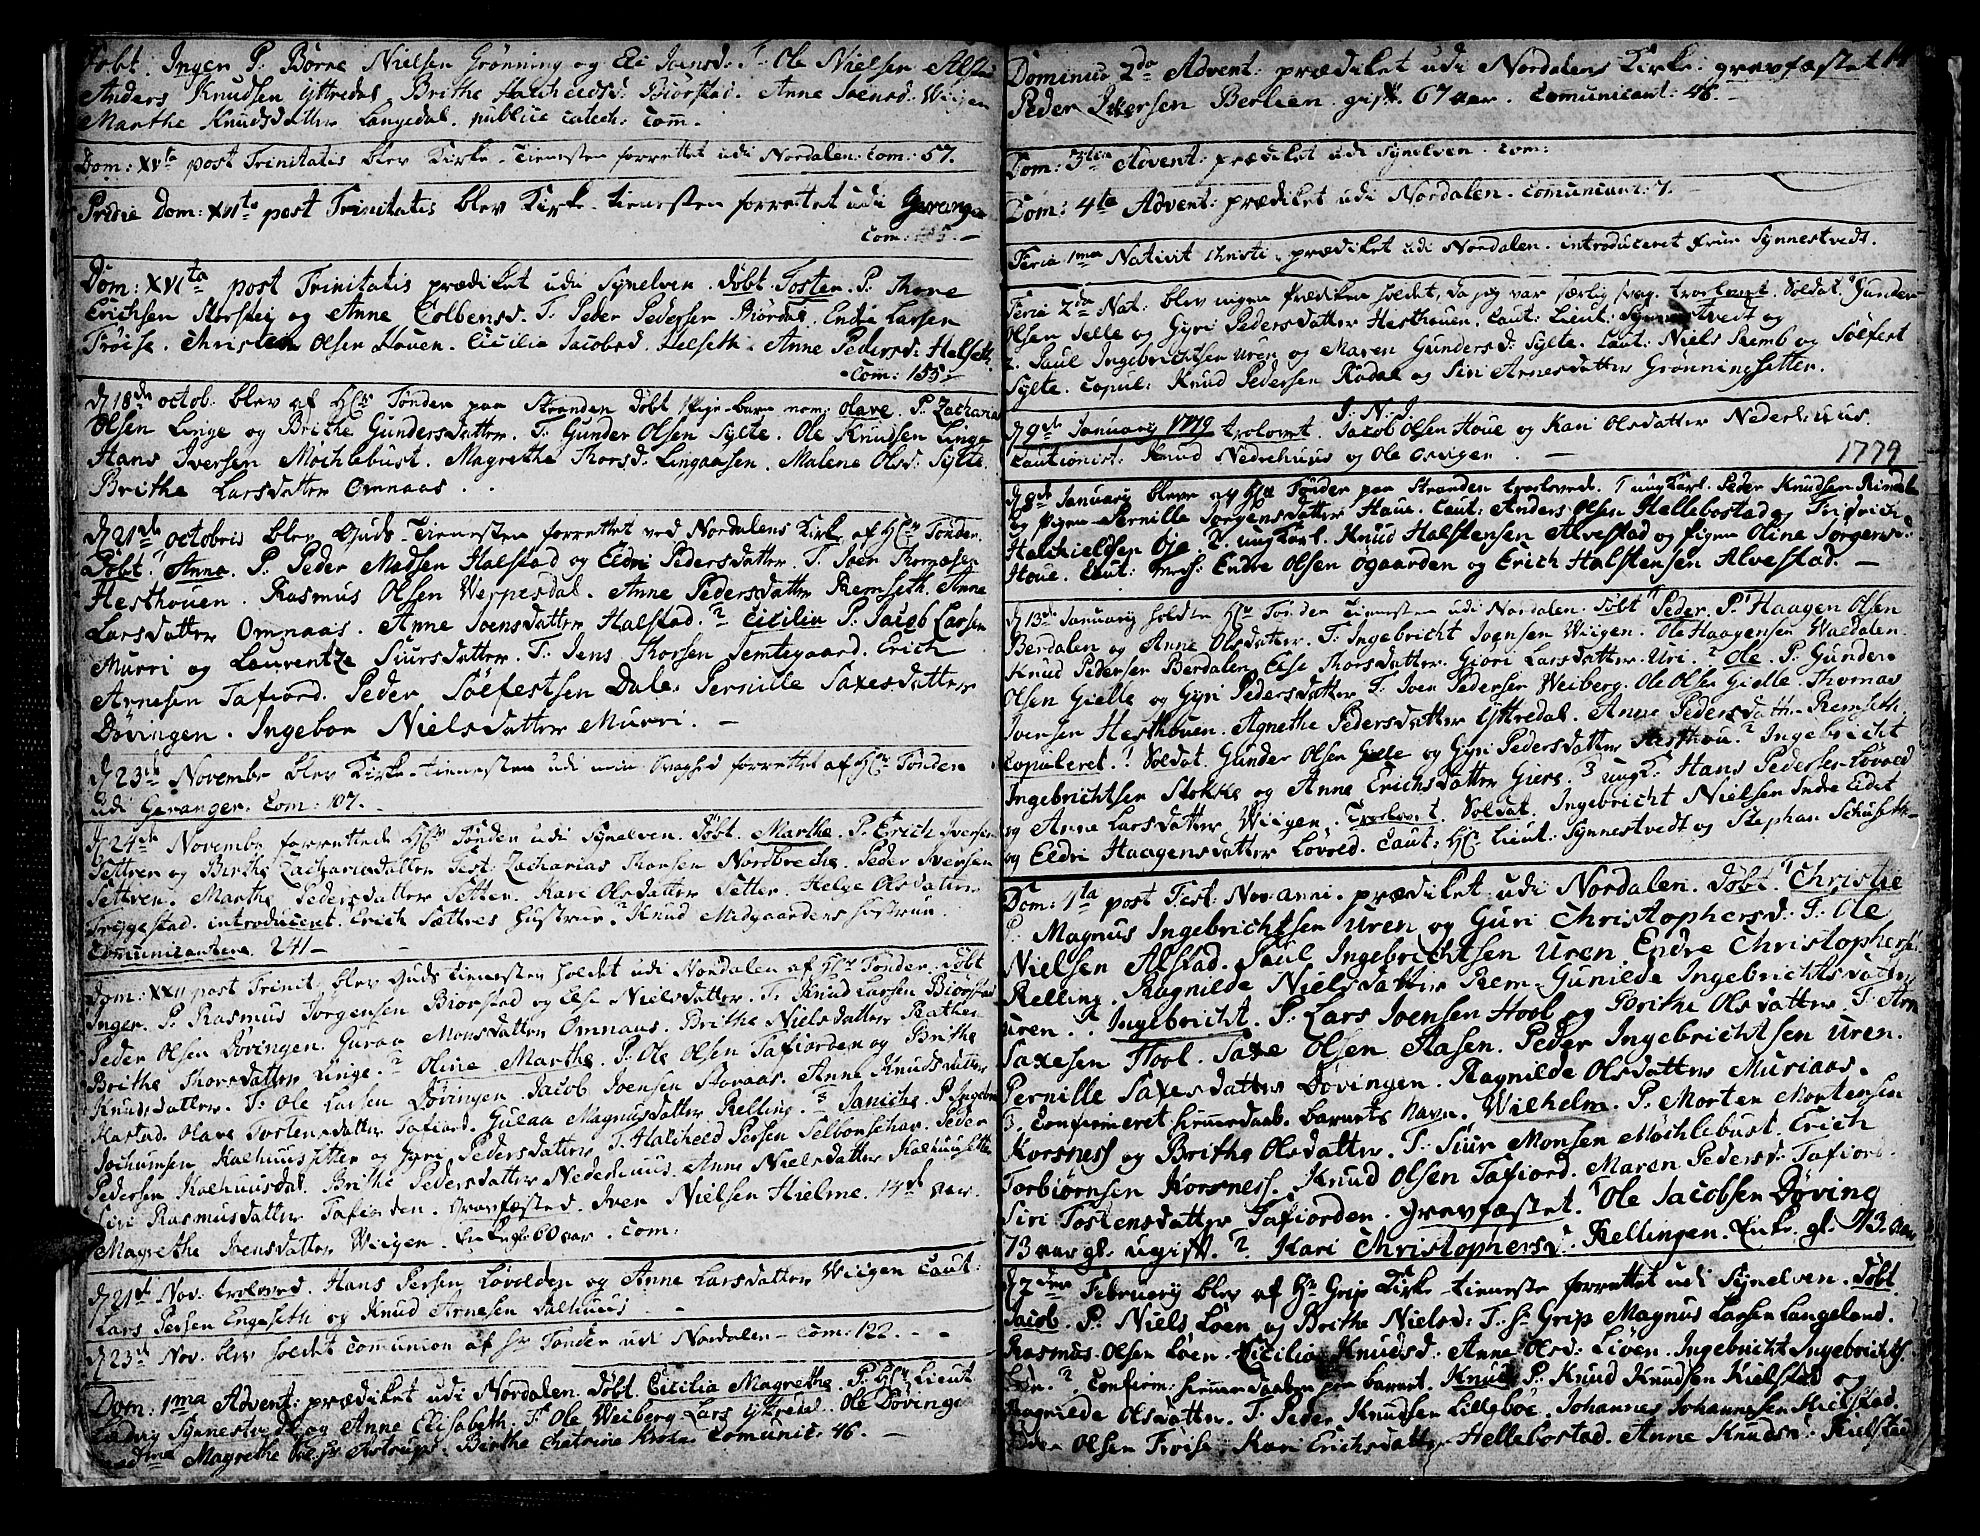 Døbt. Inger P: Børne Nielsen Grønning og Eli Joensd: T: Ole Nielsen Alstad
Anders Knudsen Yttredal Brithe Halchieldsd: Biørstad. Anne Joensd: Wiigen
Marthe Knudsdatter Langedal. publice catech: Com.
Dom: XVta post Trinitatis blev Kirke-Tienesten forrettet udi Nordalen: Com: 57.
Pridie Dom: XVIta post Trinitatis blev Kirke-tienesten forrettet udi Geranger
Com:
Dom: XVIta post Trinitatis prædiket udi Synelven. Døbt. Tosten. P: Thore
Erichsen Storstei og Anne Colbensd. T: Peder Pedersen Biørdal. Endre Larsen
Frøise. Christen Olsen Hauen. Cicilia Jacobsd. Helseth. Anne Pedersd: Halseth.
Com: 155.
d 18de octob: blev af Hr: Tønder paa Stranden døbt Pige-barn nom: Olave. P: Zacharias
Olsen Linge og Brithe Gundersdatter. T: Gunder Olsen Sylte. Ole Knudsen Linge
Hans Iversen Mochlebust. Magrethe Thorsd: Lingaasen. Malene Olsd: Sylte.
Brithe Larsdatter Omnaas.
d 21de octobris blev Guds-Tienesten forrettet ved Nordalens Kirke af Hr: Tønder.
Døbt. Anna. P: Peder Madsen Halstad og Eldri Pedersdatter. T: Joen Thomasen
Hesthouen. Rasmus Olsen Werpesdal. Anne Pedersdatter Remseth. Anne
Larsdatter Omnaas. Anne Joensdatter Halstad. 2 Cicilia P: Jacob Larsen
Murri og Laurentze Siursdatter. T: Jens Thorsen Temtegaard. Erich
Arnesen Tafiord. Peder Søefestsen Dale. Pernille Saxesdatter
Døvingen. Ingebor Nielsdatter Murri.
d 23de Novembr blev Kirke-tienesten udi min Svaghed forrettet af Hr: Tønder
udi Geranger. Com: 107.
d 24de Novembr forrettede Hr: Tønder udi Synelven. Døbt. Marthe. P: Erich Iversen
Settren og Brithe Zachariædatter Test: Zacharias Thorsen Nordbreche. Peder Iversen
Settren. Marthe Pedersdatter Setter. Kari Olsdatter Setter. Helge Olsdatter
Tryggestad. introduceret. Erich Sættres Hustrue. Knud Medgaardens hostrue.
Comunicantere 241
Dom: XXII post Trinit: blev Guds tienesten holdet udi Nordalen af Hr: Tønder. Døbt
Inger. P: Rasmus Jørgensen Biørstad og Else Nielsdatter. T: Knud Larsen Biørstad
Peder Olsen Døvingen. Guraa Monsdatter Omnaas. Brithe Nielsdatter Rathe.
Brithe Thorsdatter Linge. 2 Oline Marthe. P: Ole Olsen Tafiorden og Brithe
Knudsdatter. T: Ole Larsen Døvingen. Jacob Joensen Storaas. Anne Knudsdatter
Kastad. Olave Tostensdatter Tafiord. Gulaa Magnusdatter Relling. 3 Janiche. P: Ingebr
Jochumsen Kalhuussetter og Gyri Pedersdatter. T: Halchield Persen Selbonschar. Peder
Pedersen Kalhuusdal. Brithe Pedersdatter Nederhuus. Anne Nielsdatter Kalhuusetter
Siri Rasmusdatter Tafiorden. Gravfæsted. Iver Nielsen Hielme. aar.
Magrethe Joensdatter Weigen. Enke gl: 60 aar. Com:
d 21de Nov: trolovet. Hans Persen Løvolden og Anne Larsdatter Wiigen Caut:
Lars Persen Engeseth og Knud Arnesen Dalhuus
d 23de Nov. blev holdet communion af Hr Tønder udi Nordalen. Com: 122.
Dom: 1ma Advent: prædiket udi Nordalen. Døbt. Cicilia Magrethe. P: Hr Lieut
Ludvig Synnestvedt og Anne Elisabeth. T. Ole Weiberg Lars Yttredal. Ole Døving
Magrethe Birthe Chatrine Comunic: 46.
Dominus 2da Advent: prædiket udi Nordalens Kirke. gravfæstet 14
Peder Iversen Berlien. gift. 67 aar. Comunicant: 48.
Dom: 3tia Advent: prædiket udi Synelven. Com:
Dom: 4ta Advent: prædiket udi Nordalen. Comunicant: 7.
Feria 1ma Nativit Christi. prædiket udi Nordalen. introduceret Frue Synnestvedt.
Feria 2da Nat: blev ingen Prædiken holdet, da jeg var særlig svag. trolovet. Soldat. Gunder
Olsen Jelle og Gyri Pedersdatter Hesthouen. Caut: Lieut. Synnestvedt og
2. Paul Ingebrichtsen Uren og Maren Gundersd: Sylte. Caut: Niels Remb og Søfest
Sylte. Copul: Knud Pedersen Rødal og Siri Arnesdatter Grønningsetter.
J: N: J:
d 9de January 1779 trolovet. Jacob Olsen Houe og Kari Olsdatter Nederhuus.
Cautionist: Knud Nedrehuus og Ole
1779
d 9de January bleve af Hr: Tønder paa Stranden trolovede. 1 ungkarl. Peder Knudsen Rindal
og Pigen Pernille Jørgensdatter Houe. Caut: Anders Olsen Hellebostad og Fridrich
Halchieldsen Øje 2. ungkarl. Knud Halstensen Alvestad og Pigen Oline Jørgensd:
Houe. Caut: Endre Olsen Øgaarden og Erich Halstensen Alvestad.
d 13de January holdte Hr: Tønder tienesten udi Nordalen. Døbt. Peder. P: Haagen Olsen
Berdalen og Anne Olsdatter. T: Ingebricht Joensen Wiigen. Ole Haagensen Waldalen
Knud Pedersen Berdalen. Else Thorsdatter. Giøri Larsdatter Uri. 2 Ole. P: Gunder
Olsen Gielle og Gyri Pedersdatter T: Joen Pedersen Weiberg. Ole Olsen Gielle. Thomas
Iversen Hesthouen. Agnethe Pedersdatter Yttredal. Anne Pedersdatter Remseth.
Copuleret. 1 Soldat Gunder Olsen Gielle og Gyri Pedersdatter Hesthou. 2 Ingebricht
Ingebrichtsen Stokke og Anne Erichsdatter Giere. 3 ungk: Hans Pedersen Løvold
og Anne Larsdatter Wiigen. Trolovet. Soldat. Ingebricht Nielsen Indre Eidet
og Eldri Haagensdatter Løvold. Caut: Hr. Lieut: Synnestvedt og Stephan Schuseth
Dom: 1ta post Fest: Nov: anni. prædiket udi Nordalen. Døbt. Christie
P: Magnus Ingebrichtsen Uren og Guri Christophersd: T: Ole
Nielsen Alstad. Paul Ingebrichtsen Uren. Endre Christophersen
Relling. Ragnilde Nielsdatter Rem. Gunilde Ingebrichtsdatter
Uren. 2 Ingebricht. P: Lars Joensen Hool og Brithe Olsdatter. T: Arn
Saxesen Hool. Saxe Olsen Aasen. Peder Ingebrichtsen Uren.
Pernille Saxesdatter Døvingen. Ragnilde Olsdatter Muriaas.
3. Confirmeret hiemmedaab. barnets navn. Wilhelm. P: Morten Mortensen
Korsness og Brithe Olsdatter. T: Siur Monsen Mochlebust. Erich
Torbiørnsen Korsness. Knud Olsen Tafiord. Maren Pedersd: Tafiord.
Siri Tostensdatter Tafiorden. Gravfæstet. 1 Ole Jacobsen Døving
73 aar gl: ugift. 2. Kari Christophersd: Rellingen. Enke. gl: 73. aar
d 2den February blev af Hr Grip Kirke-tieneste forrettet udi Synelven. Døbt
Jacob. P: Niels Løen og Brithe Nielsd: T: Hr Grip Magnus Larsen Langeland.
Rasmus Olsen Løen. Cicilia Knudsd: Anne Olsd: Liøen. Ingebricht Ingebrichts.
2. Confirm: hiemmedaaben paa barnet. Knud P: Knud Knudsen Kielstad og
Ragnilde Olsdatter. T: Peder Knudsen Lillebøe. Johannes Johannesen Kielstad.
Peder Olsen Frøise. Kari Erichsdatter Hellebostad. Anne Knudsd: Kielstad